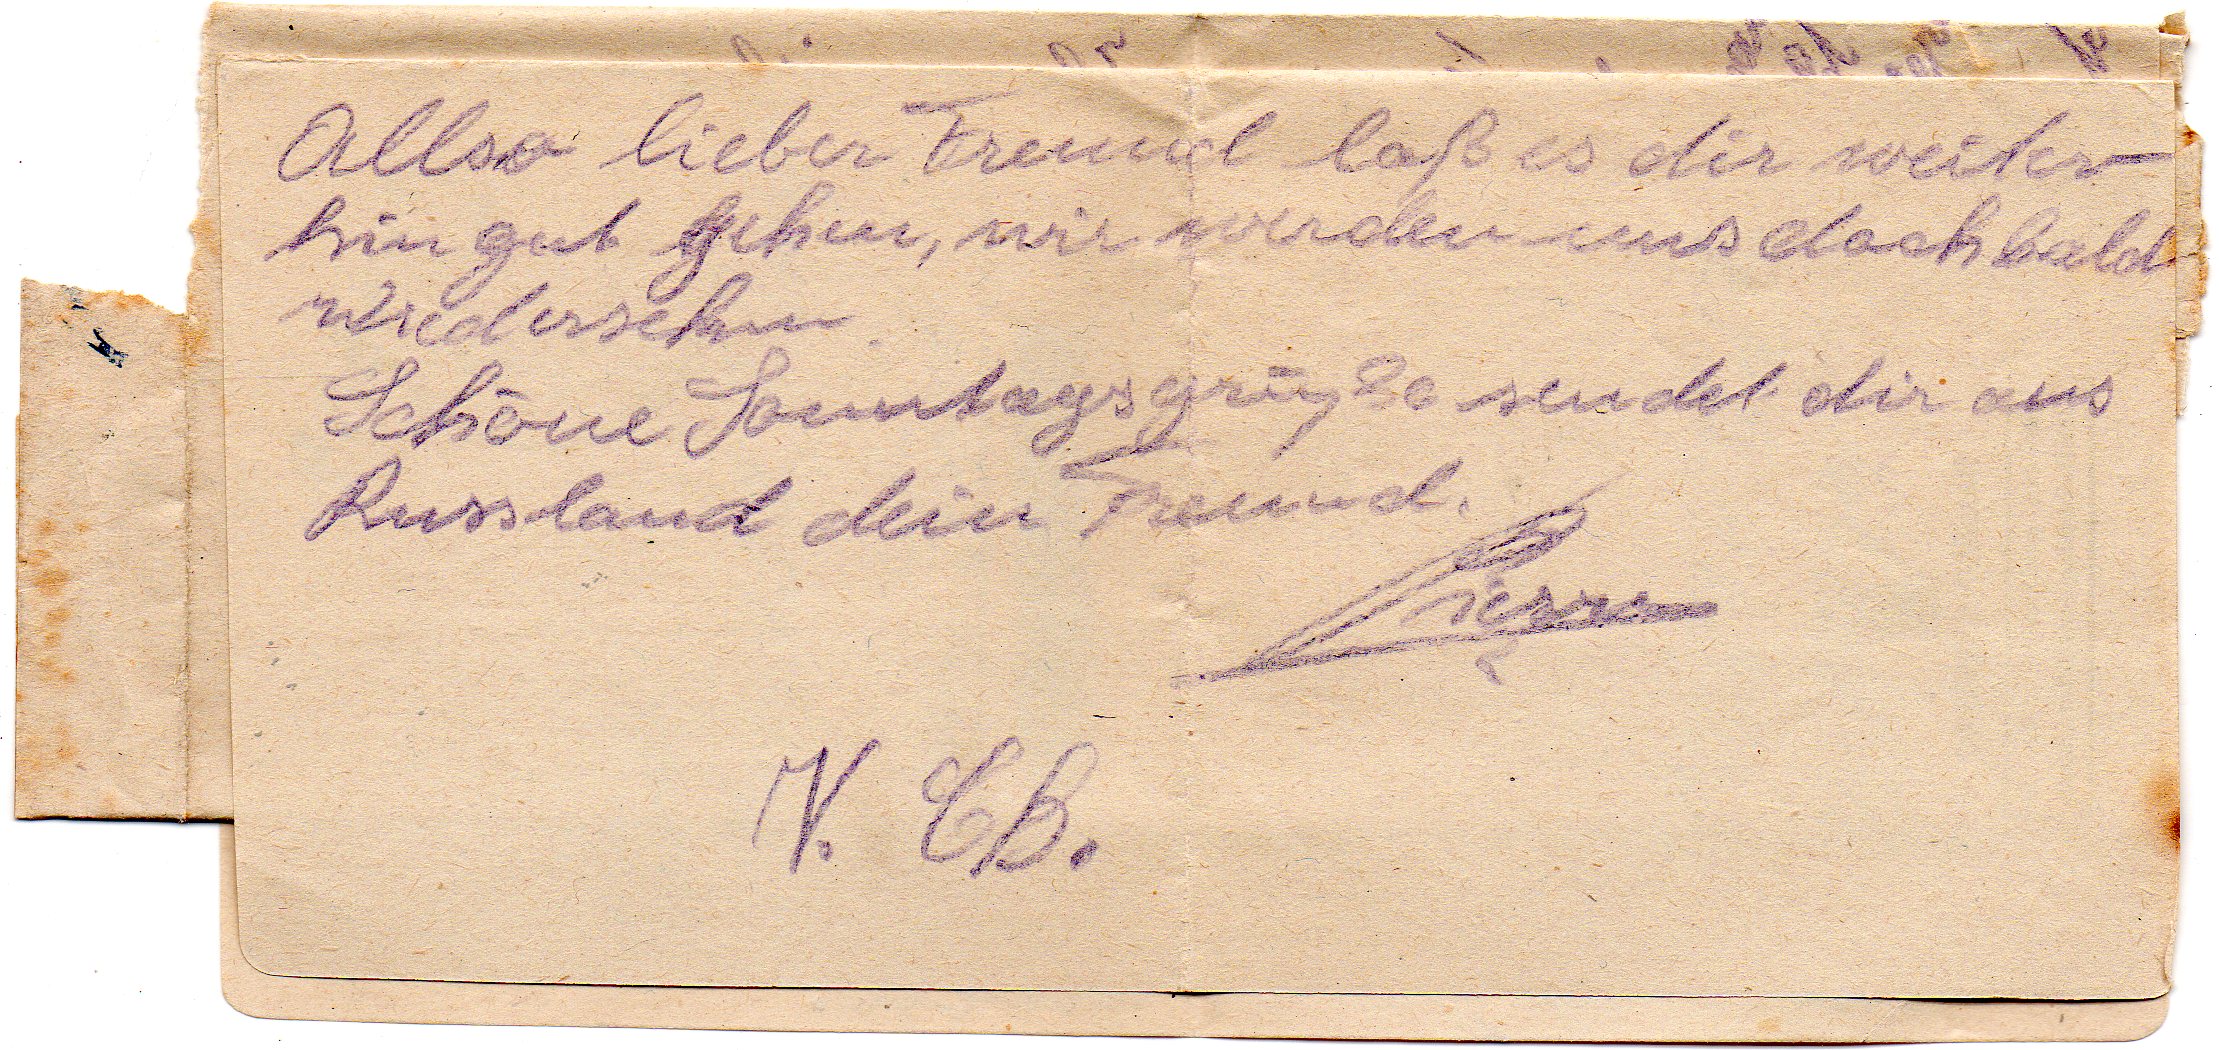 Allso lieber Freund laß es dir weiter
hin gut gehen, wir werden uns doch bald
wiedersehn
Schöne Sonntagsgrüße sendet dir aus
Russland dein Freund.
Pierre
V. E B.